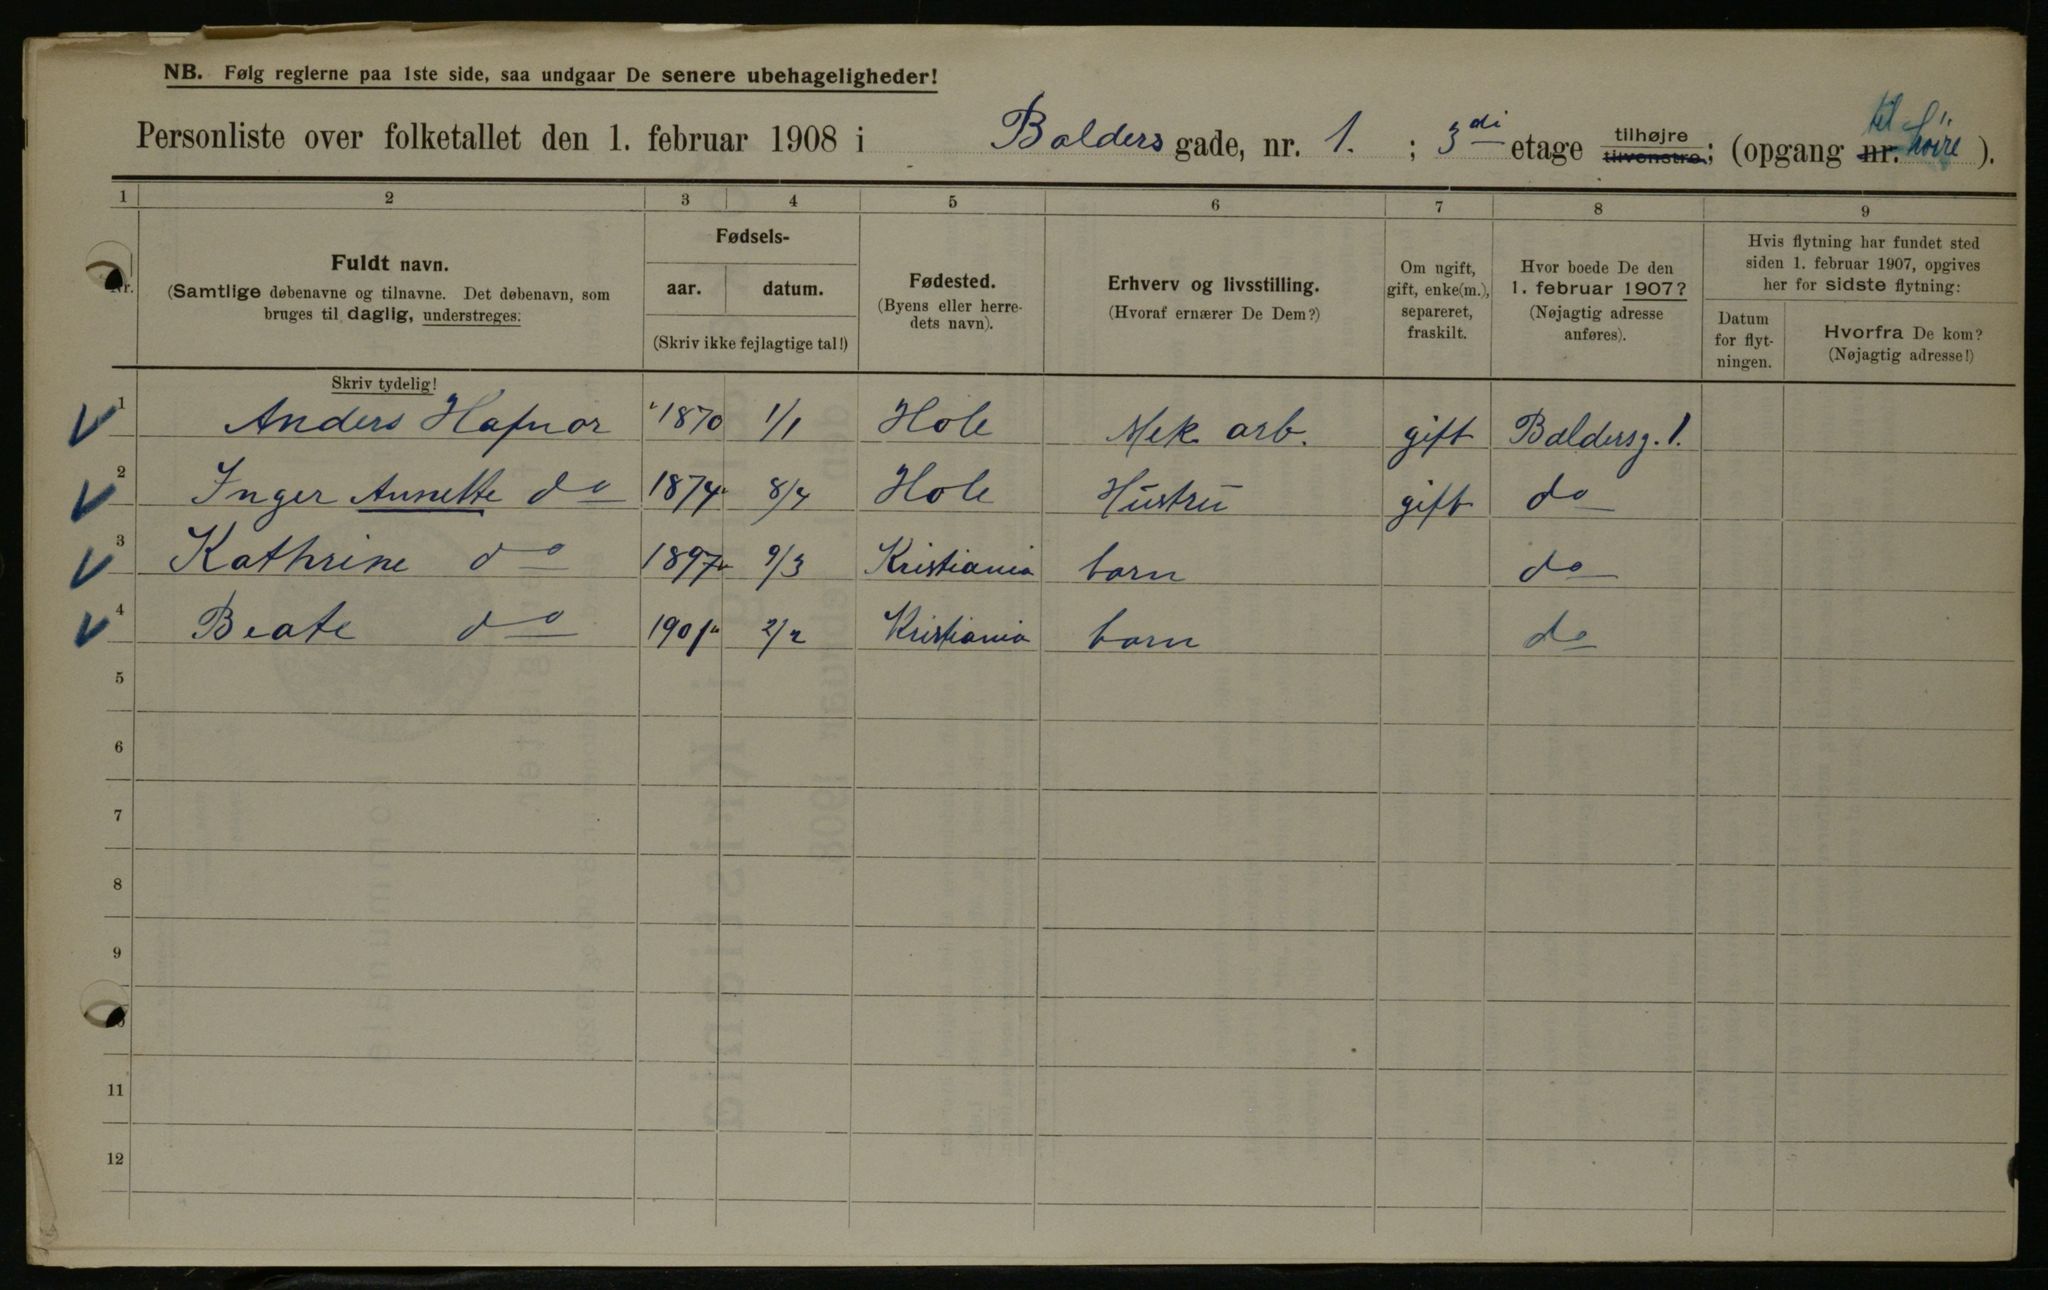 NB. Følg reglerne paa 1ste side, saa undgaar De senere ubehageligheder!
Personliste over folketallet den 1. februar 1908 i Balders gade, nr. 1. ; 3di etage tilhøjre tilvenstre; (opgang nr. til høire ).
1 2 3 4 5 6 7 8 9
Nr. Fuldt navn. (Samtlige døbenavne og tilnavne. Det døbenavn, som bruges til daglig, understreges. Skriv tydelig!
Fødsels- aar. datum. (Skriv ikke fejlagtige tal!)
Fødested. (Byens eller herredets navn).
Erhverv og livsstilling. (Hvoraf ernærer De Dem?)
Om ugift, gift, enke(m.), separeret, fraskilt.
Hvor boede De den 1. februar 1907? (Nøjagtig adresse anføres).
Hvis flytning har fundet sted siden 1. februar 1907, opgives her for sidste flytning:
Datum for flytningen.
Hvorfra De kom? (Nøjagtig adresse!)
1 Anders Hafnor 1870 1/1 Hole Mek arb. gift Baldersg. 1.
2 Inger Annette do 1874 8/7 Hole Hustru gift do
3 Kathrine do 1897 9/3 Kristiania barn do
4 Beate do 1901 2/2 Kristiania barn do
5
6
7
8
9
11
12